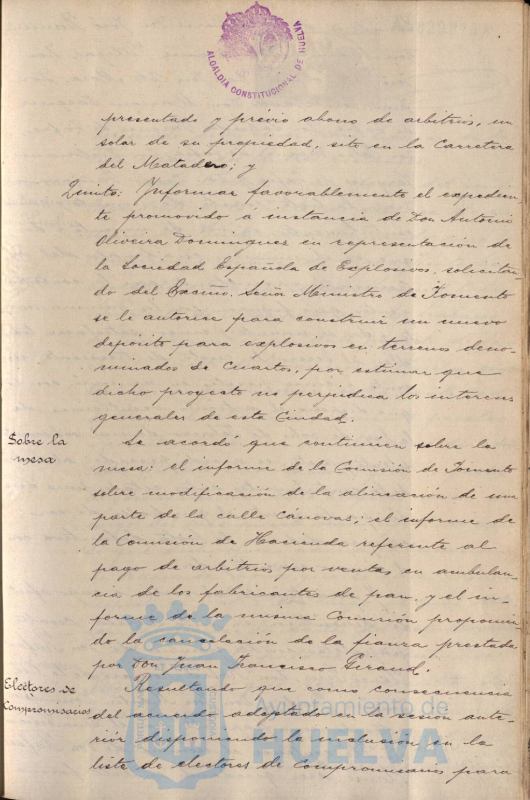 ALCALDIA CONSTITUCIONAL DE HUELVA
presentado y prévio abono de arbitrios, un
solar de su propiedad, sito en la Carretera
del Matadero; y
Quinto: Informar favorablemente el expedien-
te promovido á instancia de Don Antonio
Oliveira Domingues en representación de
la Sociedad Española de Explosivos, solicitan-
do del Excmo. Señor Ministro de Fomento
se le autorice para construir un nuevo
depósito para explosivos en terrenos deno-
minados de Cuartos, por estimar que
dicho proyecto no perjudica los intereses
generales de esta Ciudad.
Sobre la
mesa
Se acordó que continúen sobre la
mesa: el informe de la Comisión de Fomento
sobre modificación de la alineación de una
parte de la calle Cánovas; el informe de
la Comisión de Hacienda referente al
pago de arbitrios por ventas en ambulan-
cia de los fabricantes de pan, y el in-
forme de la misma Comisión proponien-
do la cancelación de la fianza prestada
por Don Juan Francisco Giraud.
Electores de
Compromisarios
Resultando que como consecuencia
del acuerdo adoptado en la sesión ante-
rior disponiendo la inclusión en la
lista de electores de compromisarios para
Ayuntamiento de
HUELVA